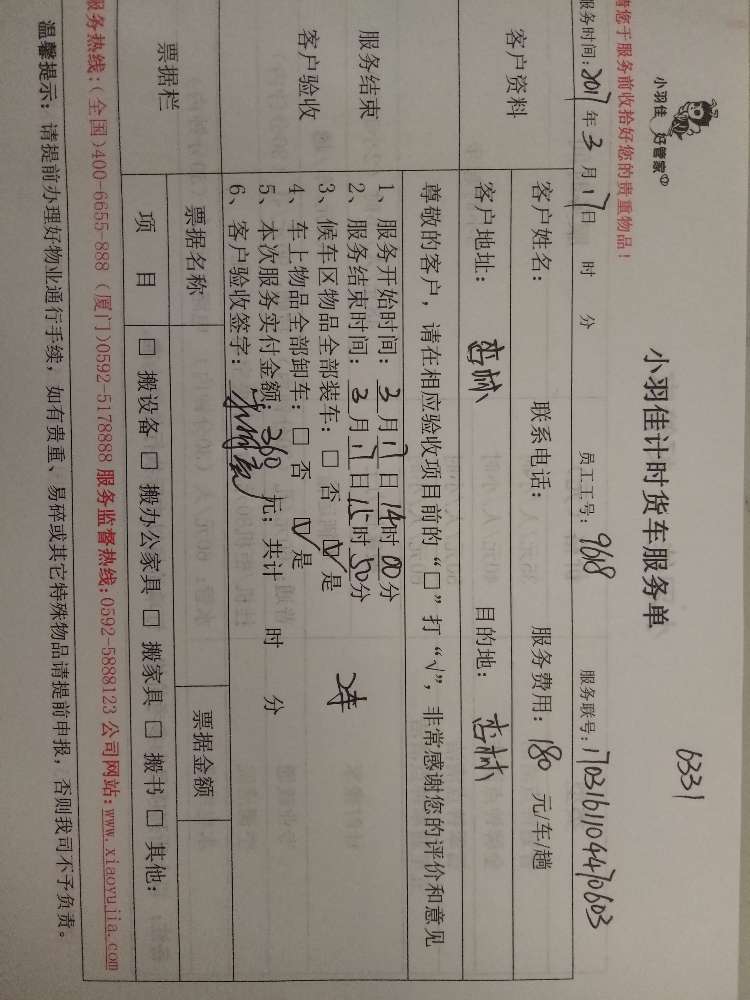 6331
小羽佳 好管家
小羽佳计时货车服务单
请您于服务前收拾好您的贵重物品!
服务时间: 2017年 3 月 17日 时 分 员工工号: 968 服务联号: 1703161104470603
客户资料
客户姓名: 联系电话: 服务费用: 180 元/车/趟
客户地址: 杏林 目的地: 杏林
服务结束
客户验收
尊敬的客户, 请在相应验收项目前的“□”打“√”, 非常感谢您的评价和意见
1、服务开始时间: 3 月 17 日 14时 00分
2、服务结束时间: 3 月 17 日 15时 50分
3、候车区物品全部装车: □ 否 ☑是 2车
4、车上物品全部卸车: □ 否 ☑是
5、本次服务实付金额: 360 元; 共计 时 分
6、客户验收签字:
票据栏
票据名称 票据金额
项 目 □ 搬设备 □ 搬办公家具 □ 搬家具 □ 搬书 □ 其他:
服务热线:(全国)400-6655-888 (厦门)0592-5178888 服务监督热线:0592-5888123 公司网站:www.xiaoyujia.com
温馨提示: 请提前办理好物业通行手续, 如有贵重、易碎或其它特殊物品请提前申报, 否则我司不予负责。